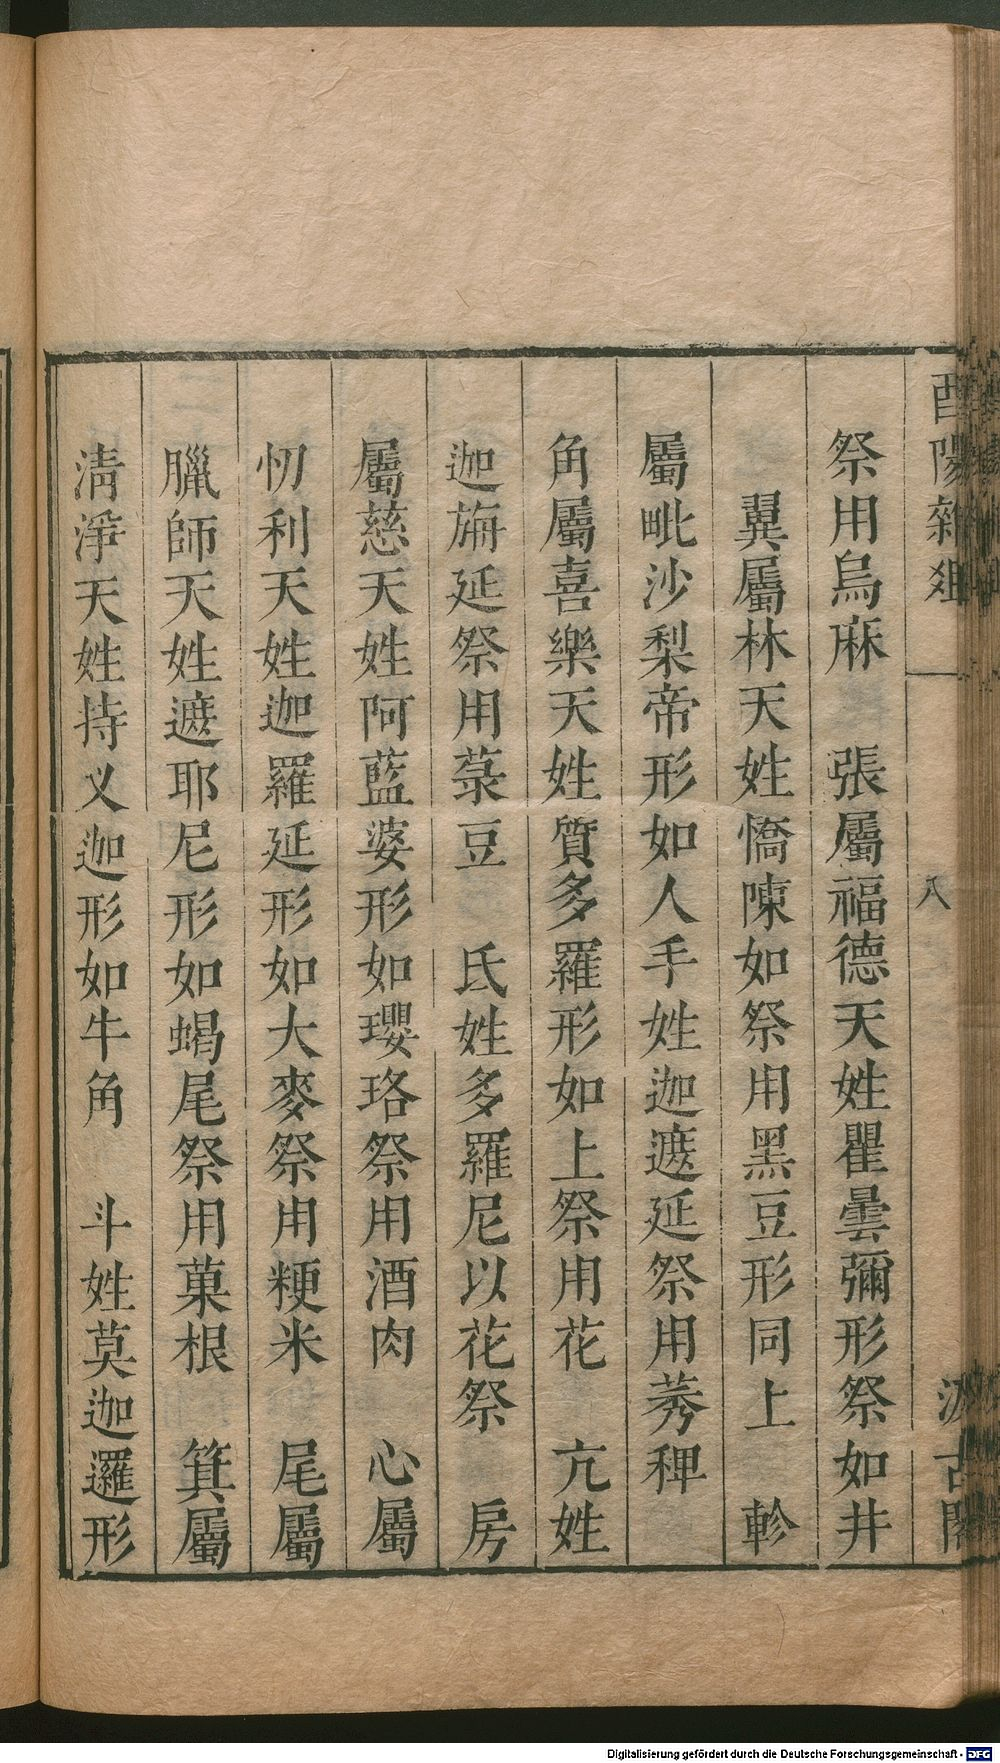 酉陽雜俎
八
汲古閣
祭用烏麻　張屬福德天姓瞿曇彌形祭如井
翼屬林天姓憍陳如祭用黑豆形同上　軫
屬毗沙梨帝形如人手姓迦遮延祭用莠稗
角屬喜樂天姓質多羅形如上祭用花　亢姓
迦旃延祭用菉豆　氐姓多羅尼以花祭　房
屬慈天姓阿藍婆形如瓔珞祭用酒肉　心屬
忉利天姓迦羅延形如大麥祭用粳米　尾屬
臘師天姓遮耶尼形如蝎尾祭用菓根　箕屬
淸淨天姓持义迦形如牛角　斗姓莫迦邏形
Digitalisierung gefördert durch die Deutsche Forschungsgemeinschaft - DFG